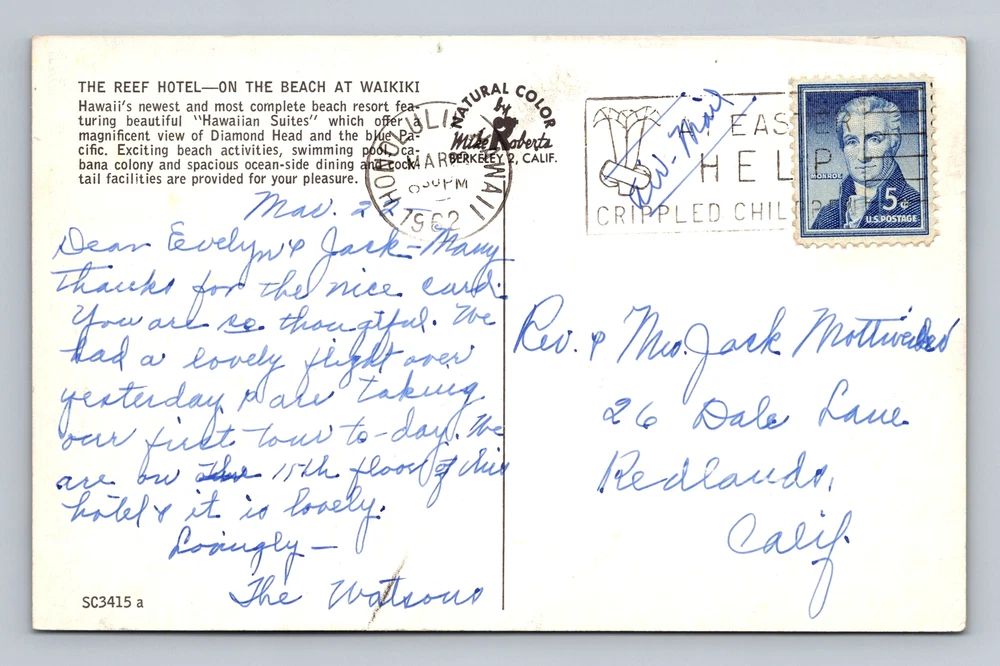 THE REEF HOTEL—ON THE BEACH AT WAIKIKI
Hawaii's newest and most complete beach resort fea-
turing beautiful "Hawaiian Suites" which offer a
magnificent view of Diamond Head and the blue Pa-
cific. Exciting beach activities, swimming pool, ca-
bana colony and spacious ocean-side dining and cock-
tail facilities are provided for your pleasure.
NATURAL COLOR
by
Mike Roberts
BERKELEY 2, CALIF.
HONOLULU HAWAII
MAR
PM
1962
EASTER
HELP
CRIPPLED CHIL
Air-Mail
MONROE
5¢
U.S. POSTAGE
Mar. 22
Dear Evelyn & Jack – Many
thanks for the nice card.
You are so thoughtful. We
had a lovely flight over
yesterday & are taking
our first tour to-day. We
are on the 15th floor of this
hotel & it is lovely.
Lovingly —
The Watsons
SC3415 a
Rev. & Mrs. Jack
26 Dale Lane
Redlands,
Calif.